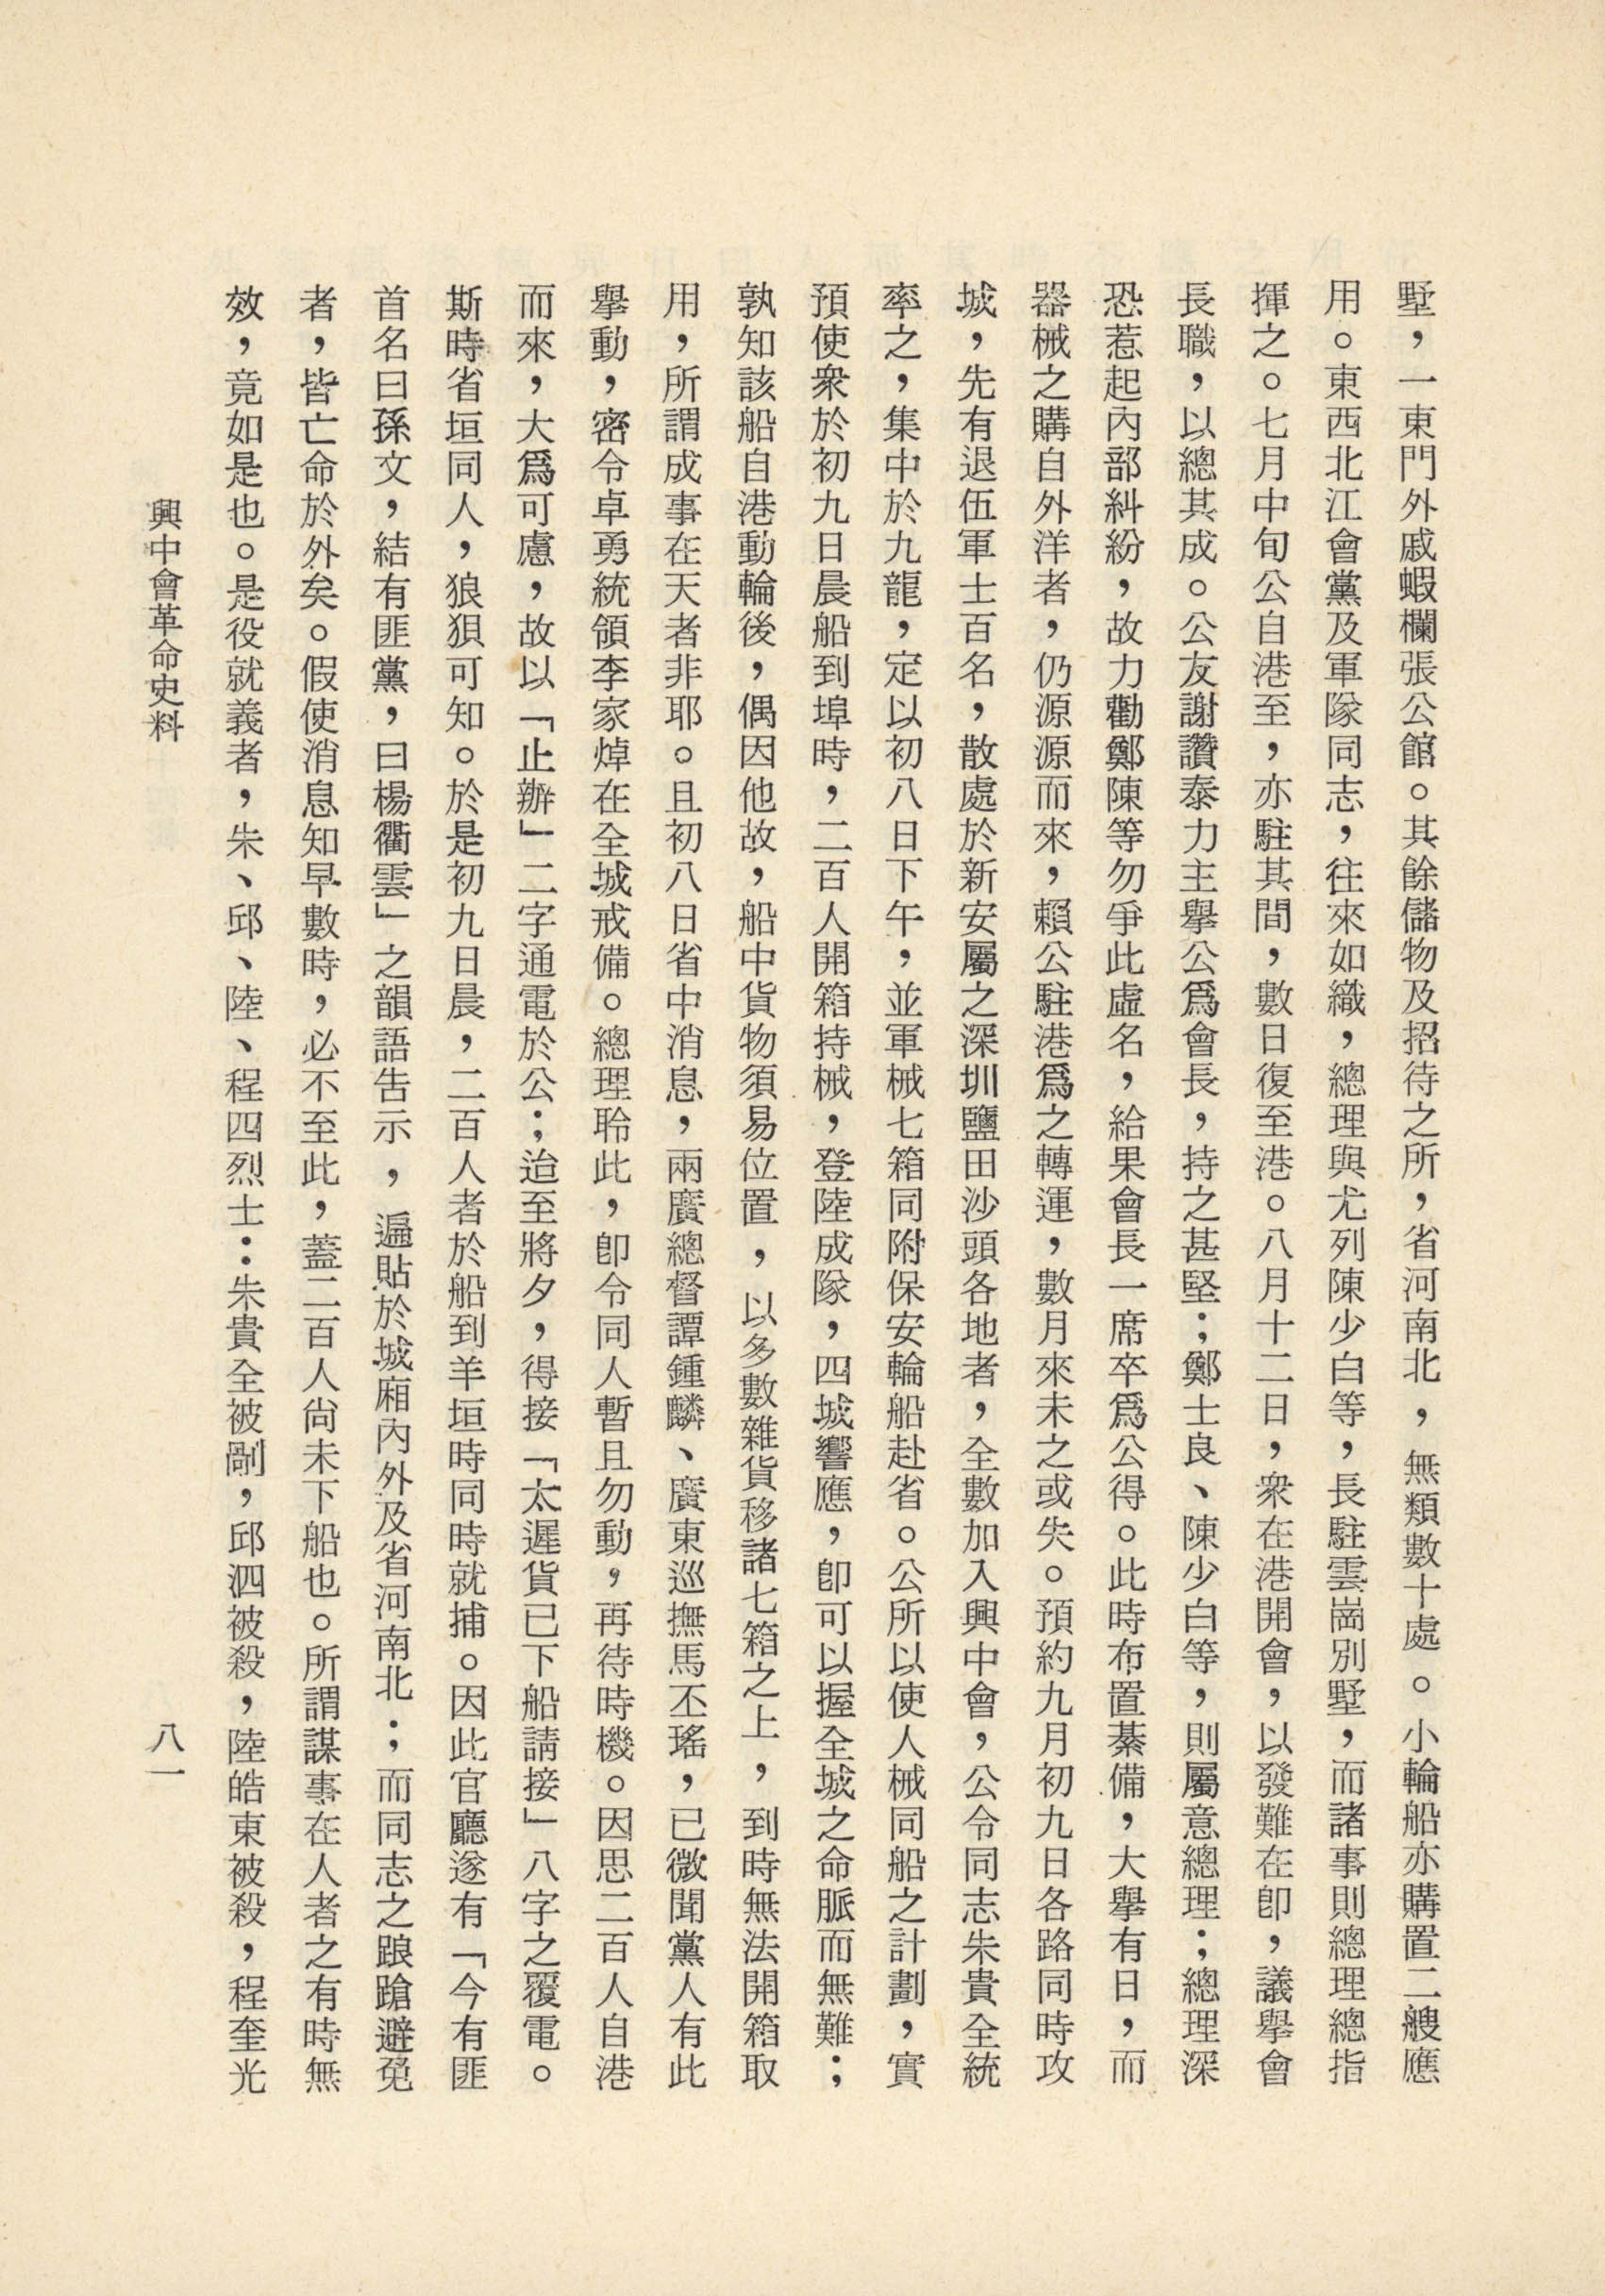 墅，一東門外戚蝦欄張公館。其餘儲物及招待之所，省河南北，無類數十處。小輪船亦購置二艘應
用。東西北江會黨及軍隊同志，往來如織，總理與尤列陳少白等，長駐雲崗別墅，而諸事則總理總指
揮之。七月中旬公自港至，亦駐其間，數日復至港。八月十二日，衆在港開會，以發難在卽，議擧會
長職，以總其成。公友謝讚泰力主擧公爲會長，持之甚堅；鄭士良、陳少白等，則屬意總理；總理深
恐惹起內部糾紛，故力勸鄭陳等勿爭此虛名，給果會長一席卒爲公得。此時布置綦備，大擧有日，而
器械之購自外洋者，仍源源而來，賴公駐港爲之轉運，數月來未之或失。預約九月初九日各路同時攻
城，先有退伍軍士百名，散處於新安屬之深圳鹽田沙頭各地者，全數加入興中會，公令同志朱貴全統
率之，集中於九龍，定以初八日下午，並軍械七箱同附保安輪船赴省。公所以使人械同船之計劃，實
預使衆於初九日晨船到埠時，二百人開箱持械，登陸成隊，四城響應，卽可以握全城之命脈而無難；
孰知該船自港動輪後，偶因他故，船中貨物須易位置，以多數雜貨移諸七箱之上，到時無法開箱取
用，所謂成事在天者非耶。且初八日省中消息，兩廣總督譚鍾麟、廣東巡撫馬丕瑤，已微聞黨人有此
擧動，密令卓勇統領李家焯在全城戒備。總理聆此，卽令同人暫且勿動，再待時機。因思二百人自港
而來，大爲可慮，故以「止辦」二字通電於公；迨至將夕，得接「太遲貨已下船請接」八字之覆電。
斯時省垣同人，狼狽可知。於是初九日晨，二百人者於船到羊垣時同時就捕。因此官廳遂有「今有匪
首名曰孫文，結有匪黨，曰楊衢雲」之韻語告示，遍貼於城廂內外及省河南北；而同志之踉蹌避免
者，皆亡命於外矣。假使消息知早數時，必不至此，蓋二百人尙未下船也。所謂謀事在人者之有時無
效，竟如是也。是役就義者，朱、邱、陸、程四烈士：朱貴全被剮，邱泗被殺，陸皓東被殺，程奎光
興中會革命史料
八一